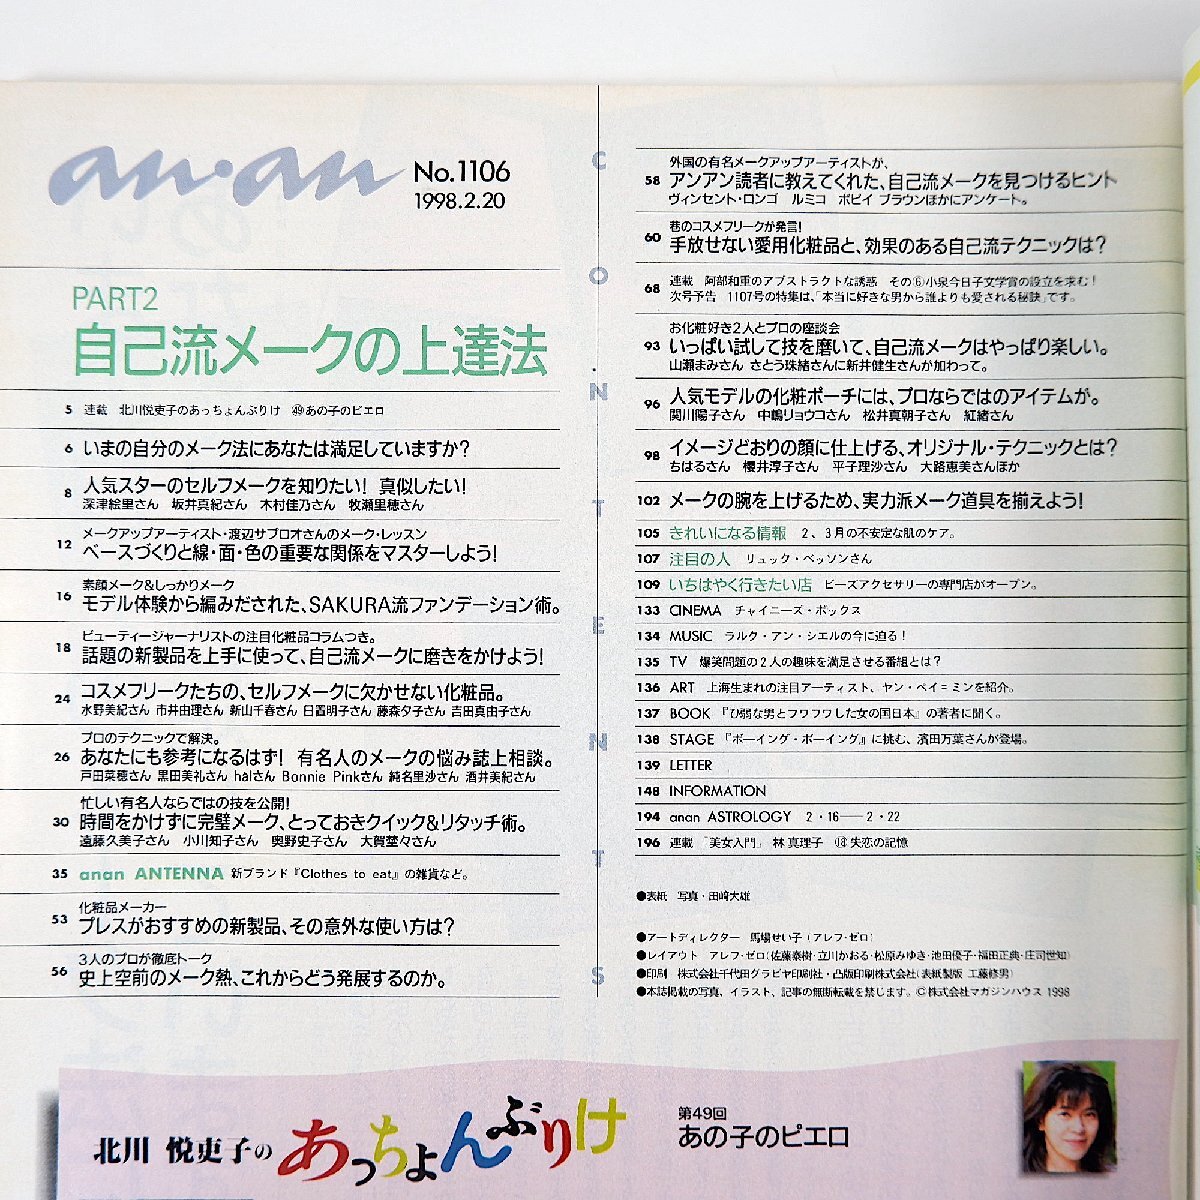 an·an
No.1106
1998.2.20
CONTENTS
PART2
自己流メークの上達法
5 連載 北川悦吏子のあっちょんぶりけ ㊾あの子のピエロ
6 いまの自分のメーク法にあなたは満足していますか?
8 人気スターのセルフメークを知りたい! 真似したい!
深津絵里さん 坂井真紀さん 木村佳乃さん 牧瀬里穂さん
12 メークアップアーティスト・渡辺サブロオさんのメーク・レッスン
ベースづくりと線・面・色の重要な関係をマスターしよう!
16 素顔メーク&しっかりメーク
モデル体験から編みだされた、SAKURA流ファンデーション術。
18 ビューティージャーナリストの注目化粧品コラムつき。
話題の新製品を上手に使って、自己流メークに磨きをかけよう!
24 コスメフリークたちの、セルフメークに欠かせない化粧品。
水野美紀さん 市井由理さん 新山千春さん 日置明子さん 藤森夕子さん 吉田真由子さん
26 プロのテクニックで解決。
あなたにも参考になるはず! 有名人のメークの悩み誌上相談。
戸田菜穂さん 黒田美礼さん halさん Bonnie Pinkさん 純名里沙さん 酒井美紀さん
30 忙しい有名人ならではの技を公開!
時間をかけずに完璧メーク、とっておきクイック&リタッチ術。
遠藤久美子さん 小川知子さん 奥野史子さん 大賀埜々さん
35 anan ANTENNA 新ブランド『Clothes to eat』の雑貨など。
53 化粧品メーカー
プレスがおすすめの新製品、その意外な使い方は?
56 3人のプロが徹底トーク
史上空前のメーク熱、これからどう発展するのか。
58 外国の有名メークアップアーティストが、
アンアン読者に教えてくれた、自己流メークを見つけるヒント
ヴィンセント・ロンゴ ルミコ ボビイ ブラウンほかにアンケート。
60 巷のコスメフリークが発言!
手放せない愛用化粧品と、効果のある自己流テクニックは?
68 連載 阿部和重のアブストラクトな誘惑 その⑥小泉今日子文学賞の設立を求む!
次号予告 1107号の特集は、「本当に好きな男から誰よりも愛される秘訣」です。
93 お化粧好き2人とプロの座談会
いっぱい試して技を磨いて、自己流メークはやっぱり楽しい。
山瀬まみさん さとう珠緒さんに新井健生さんが加わって。
96 人気モデルの化粧ポーチには、プロならではのアイテムが。
関川陽子さん 中嶋リョウコさん 松井真朝子さん 紅緒さん
98 イメージどおりの顔に仕上げる、オリジナル・テクニックとは?
ちはるさん 櫻井淳子さん 平子理沙さん 大路恵美さんほか
102 メークの腕を上げるため、実力派メーク道具を揃えよう!
105 きれいになる情報 2、3月の不安定な肌のケア。
107 注目の人 リュック・ベッソンさん
109 いちはやく行きたい店 ビーズアクセサリーの専門店がオープン。
133 CINEMA チャイニーズ・ボックス
134 MUSIC ラルク・アン・シエルの今に迫る!
135 TV 爆笑問題の2人の趣味を満足させる番組とは?
136 ART 上海生まれの注目アーティスト、ヤン・ペイ=ミンを紹介。
137 BOOK 『ひ弱な男とフワフワした女の国日本』の著者に聞く。
138 STAGE 『ボーイング・ボーイング』に挑む、濱田万葉さんが登場。
139 LETTER
148 INFORMATION
194 anan ASTROLOGY 2・16——2・22
196 連載 「美女入門」 林 真理子 ⑱失恋の記憶
●表紙 写真・田﨑大雄
●アートディレクター 馬場せい子(アレフ・ゼロ)
●レイアウト アレフ・ゼロ(佐藤泰樹・立川かおる・松原みゆき・池田優子・福田正典・庄司世知)
●印刷 株式会社千代田グラビヤ印刷社・凸版印刷株式会社(表紙製版 工藤修男)
●本誌掲載の写真、イラスト、記事の無断転載を禁じます。©株式会社マガジンハウス 1998
北川 悦吏子の あっちょんぶりけ
第49回
あの子のピエロ